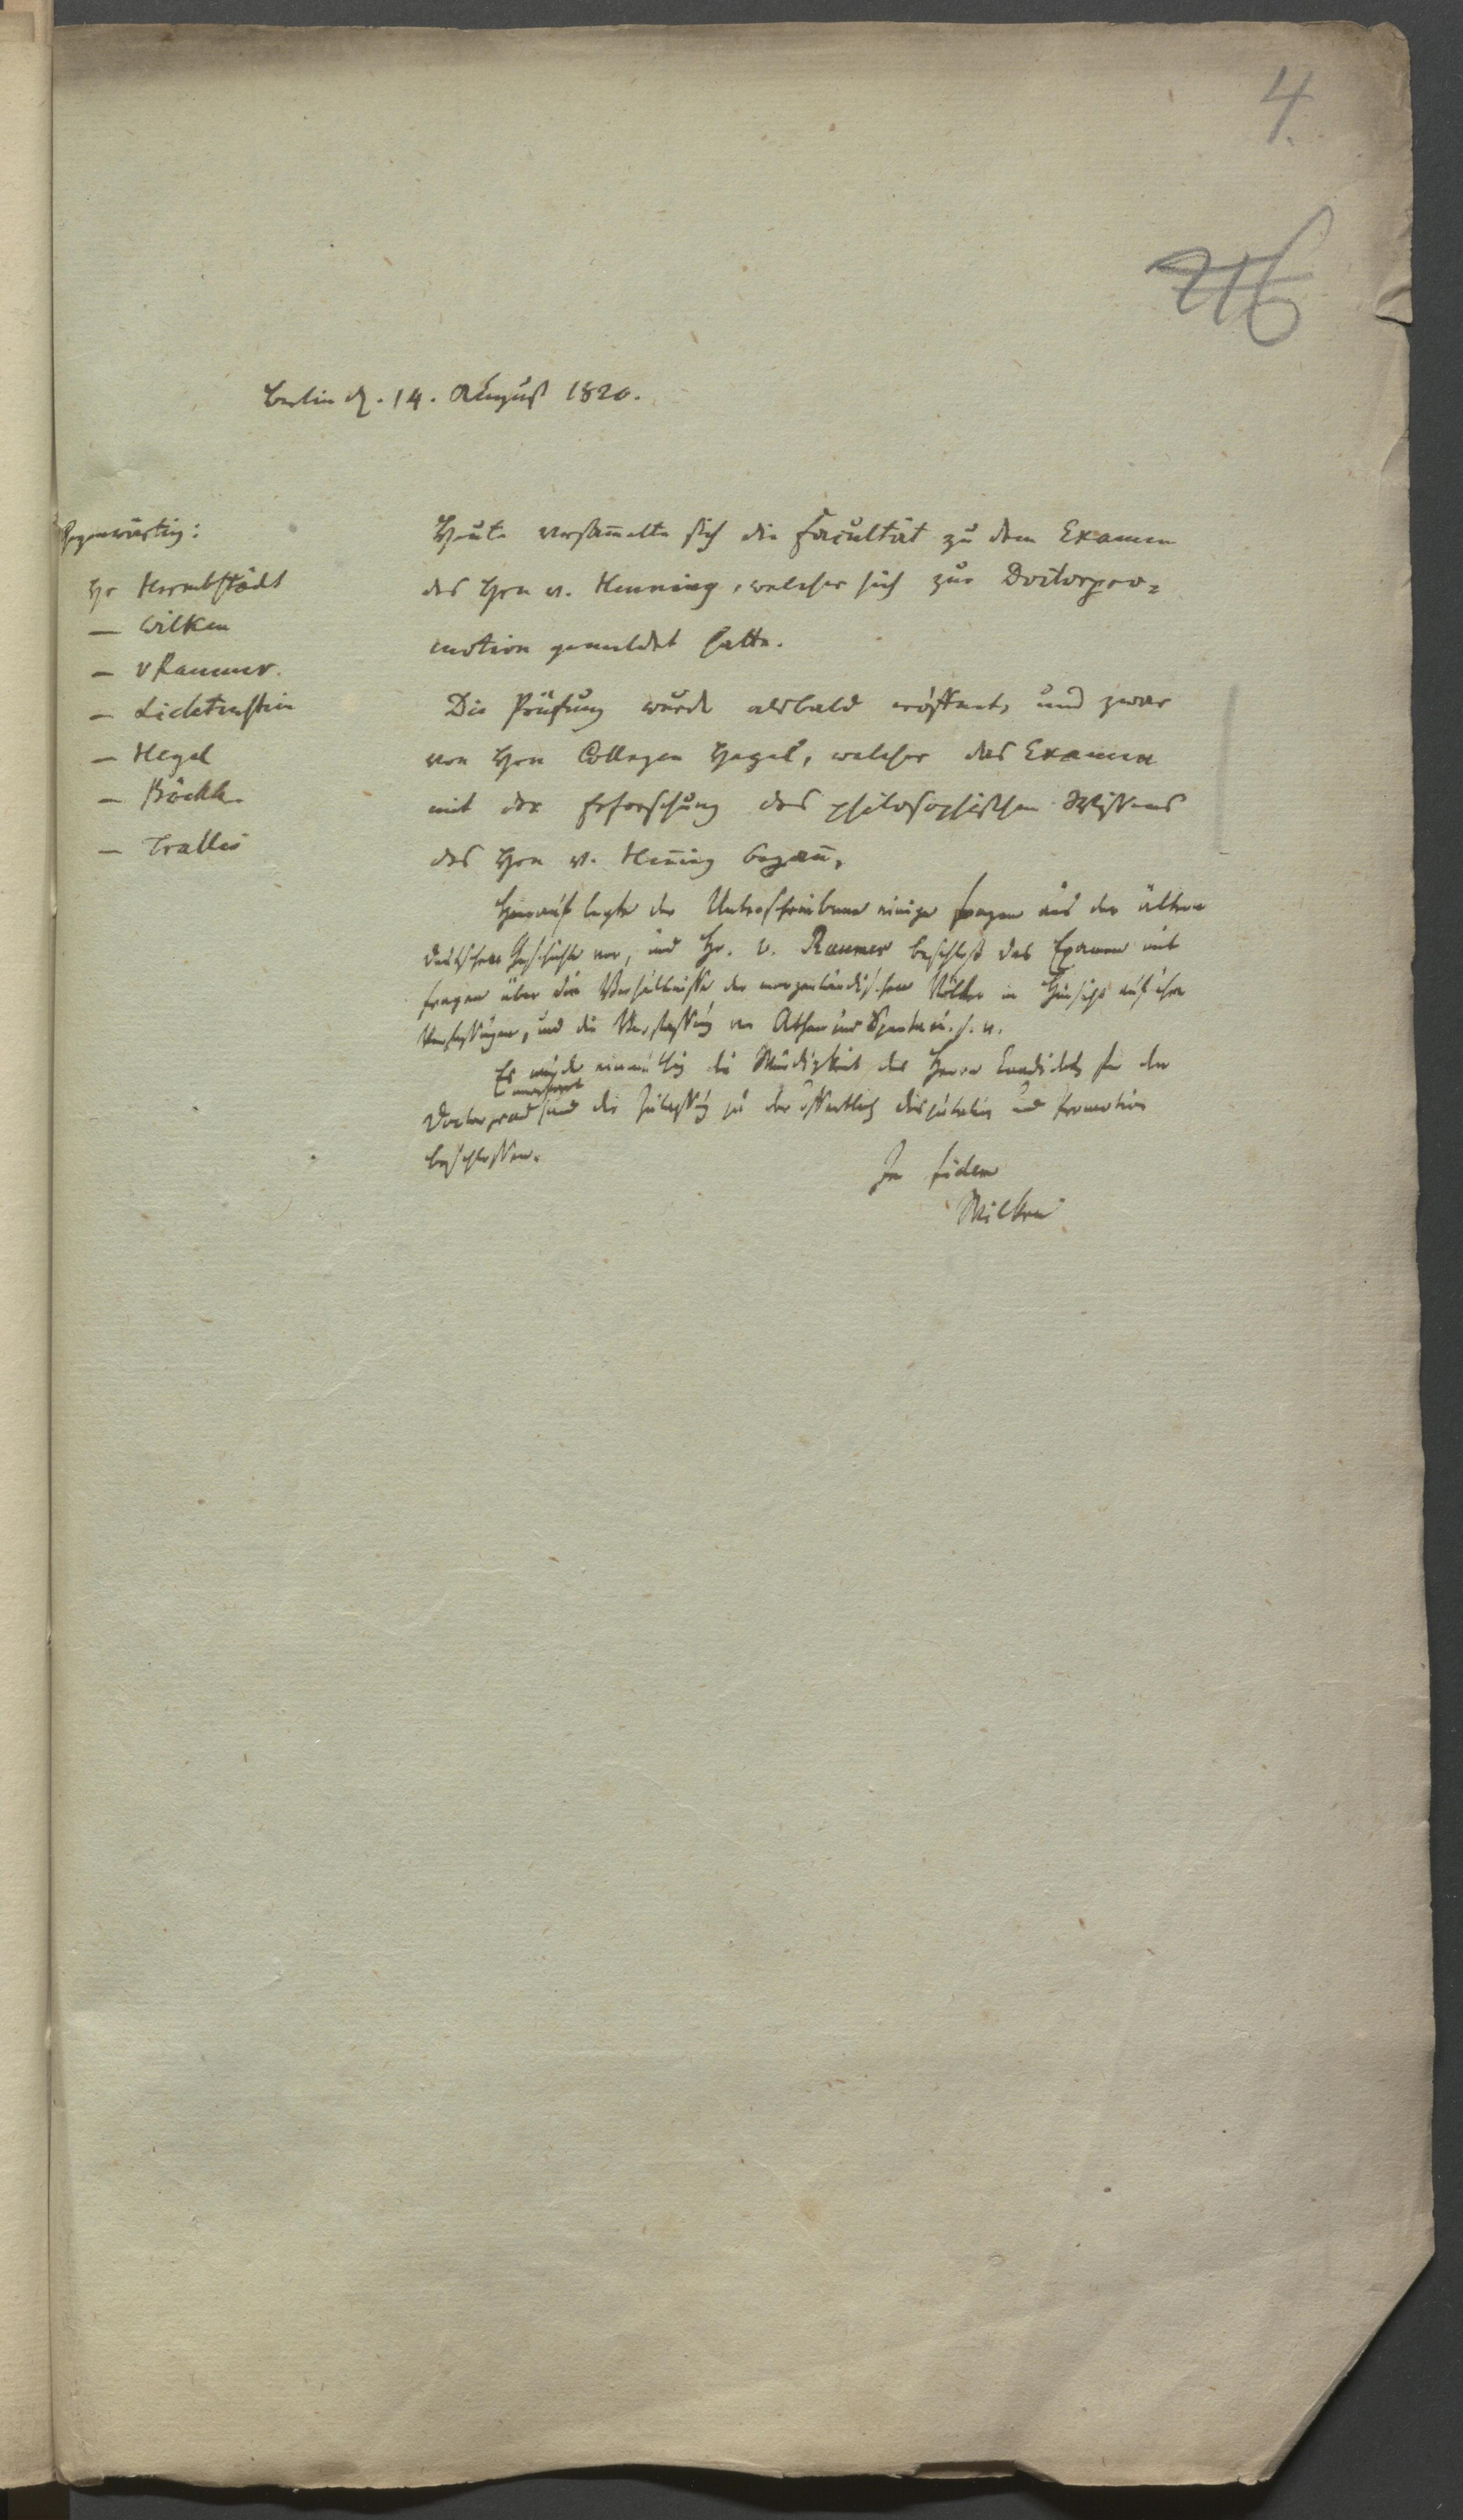 4.
216
Berlin d. 14. August 1820.
Gegenwärtig:
Hr Hermbstädt
— Wilken
— v Raumer.
— Lichtenstein
— Hegel
— Böckh
— Tralles
Heute versam̄elte sich die Facultät zu dem Examen
des Hrn v. Henning, welcher sich zur Doctorpro⸗
motion gemeldet hatte.
Die Prüfung wurde alsbald eröffnet, und zwar
von Hrn Collegen Hegel, welcher das Examen
mit der Erforschung des philosophischen Wissens
des Hrn v. Hen̄ing began̄.
Hierauf legte der Unterschriebene einige Fragen aus der ältern
deutschen Geschichte vor, und Hr. v. Raumer beschloß das Examen mit
Fragen über die Verhältnisse der morgenländischen Völker in Hinsicht auf ihre
Verfassungen, und die Verfassung von Athen und Sparta u. s. w.
Es wurde einmüthig die Würdigkeit des Herrn Candidats für den
Doctorgrad anerkannt und die Zulassung zu der öffentlich disputation und Promotion
beschlossen.
In fidem
Wilken